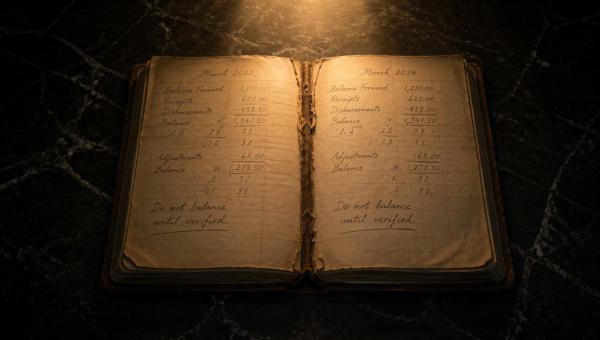 March
Balance Forward 1,210.00
Receipts 620.00
Disbursements
Balance 1,341.50
Adjustments -63.00
Balance 1,278.50
Do not balance
until verified.
March 2024
Balance Forward 1,210.00
Receipts 620.00
Disbursements
Balance 1,341.50
Adjustments -63.00
Balance 1,278.50
Do not balance
until verified.